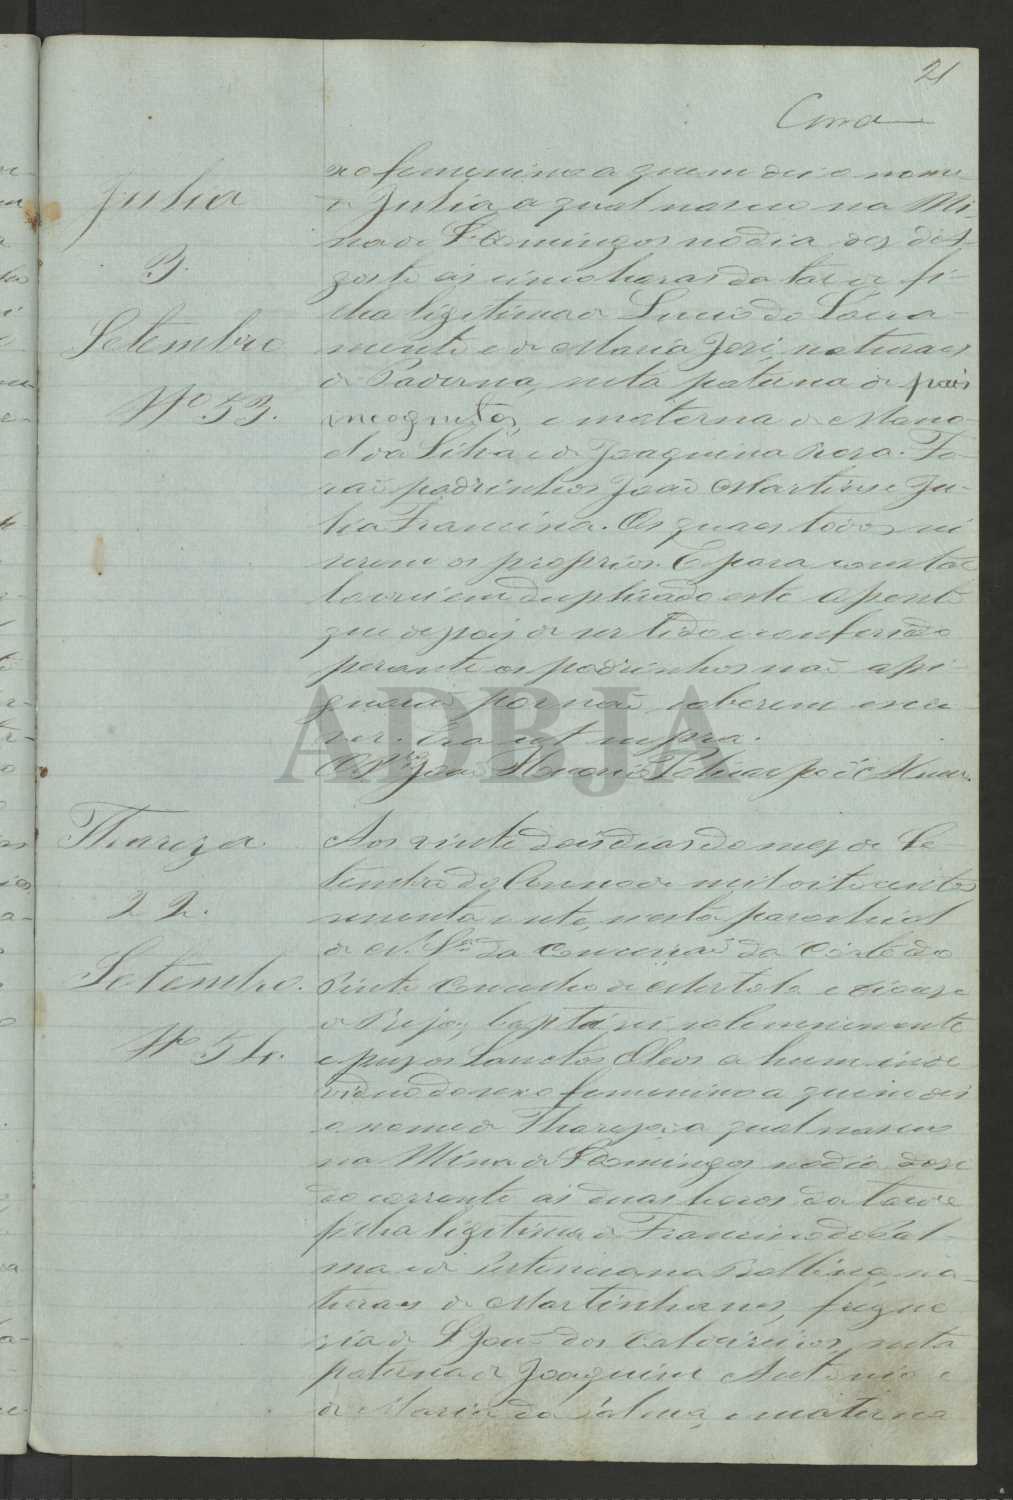 21
Julia
3.
Setembro
Nº 53.
xo femenino a quem dei o nome
de Julia a qual nasceo na Mi-
na de S. Domingos no dia dez de
ás cinco horas da tarde fi-
lha legitima de Lucio do Sacra-
mento e de Maria José, naturaes
de Paderna, neta paterna de pais
incognitos, e materna de Mano-
el da Silva e de Joaquina Rosa. Fo-
rão padrinhos João Martins e Ju-
lia Francisca. Os quaes todos
serem os proprios. E para constar
lavrei em duplicado este
que depois de ser lido e conferido
perante os padrinhos não assi-
gnarão por não saberem escre-
ver. Era ut supra.
Thareza.
22.
Setembro.
Nº 54.
Aos vinte dois dias do mez de Se-
tembro do Anno de mil oito centos
sessenta e sete, nesta parochial
de N. Srª da Conceição da Corte do
Pinto Concelho de Mertola e
de Beja, baptizei solemnemente
e puz os Sanctos Oleos a hum indi
viduo do sexo femenino a quem dei
o nome de Thareza a qual nasceo
na Mina de S. Domingos no dia doze
do corrente ás duas horas da tarde
filha legitima de Francisco de Pal-
ma e de na-
turaes de Martinhanes, fregue
sia de S. João dos Caldeireiros, neta
paterna de Joaquim Antonio e
de Maria da Palma, e materna